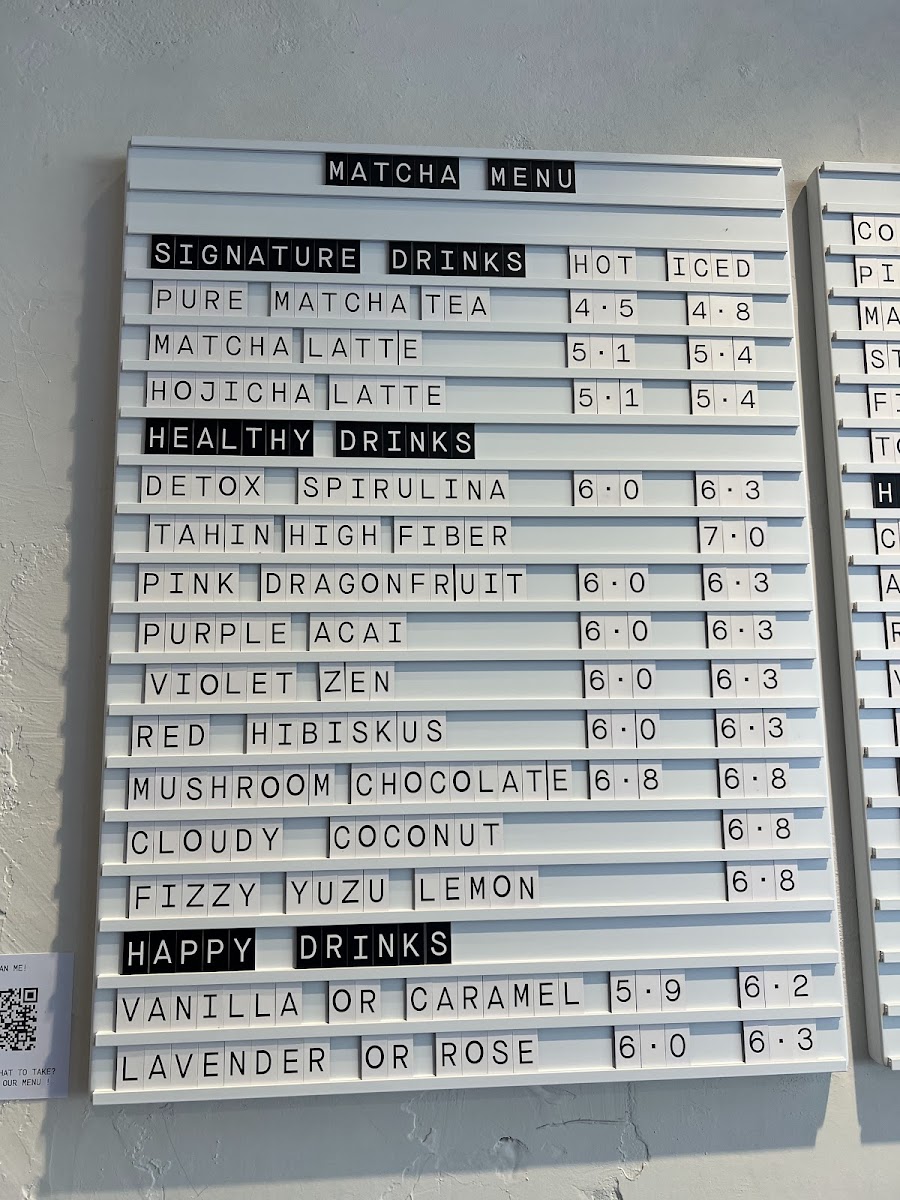 MATCHA MENU
SIGNATURE DRINKS HOT ICED
PURE MATCHA TEA 4.5 4.8
MATCHA LATTE 5.1 5.4
HOJICHA LATTE 5.1 5.4
HEALTHY DRINKS
DETOX SPIRULINA 6.0 6.3
TAHIN HIGH FIBER 7.0
PINK DRAGONFRUIT 6.0 6.3
PURPLE ACAI 6.0 6.3
VIOLET ZEN 6.0 6.3
RED HIBISKUS 6.0 6.3
MUSHROOM CHOCOLATE 6.8 6.8
CLOUDY COCONUT 6.8
FIZZY YUZU LEMON 6.8
HAPPY DRINKS
VANILLA OR CARAMEL 5.9 6.2
LAVENDER OR ROSE 6.0 6.3
ME!
TO TAKE?
OUR MENU !